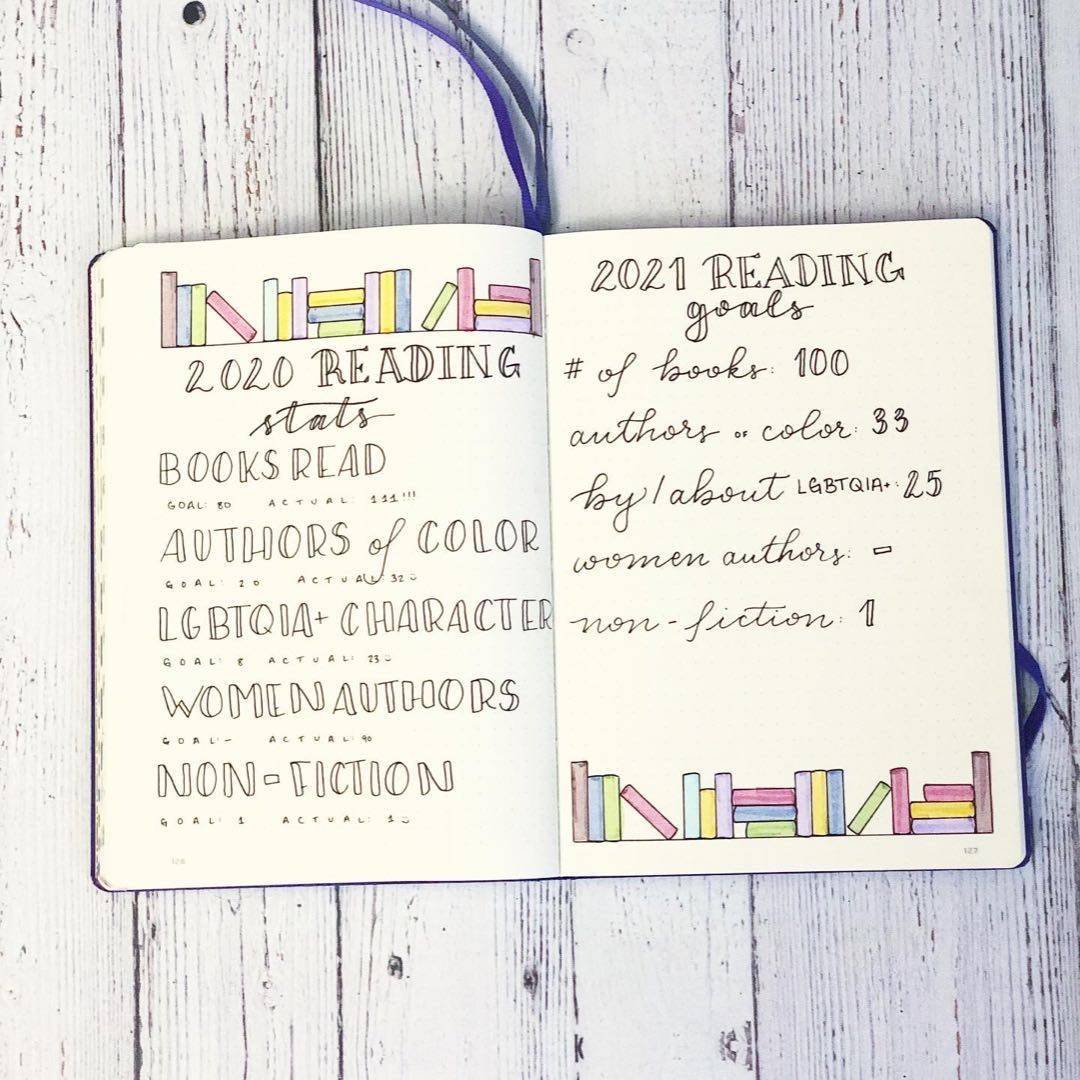 2020 READING
stats
BOOKS READ
GOAL: 80 ACTUAL: 111!!!
AUTHORS of COLOR
GOAL: 20 ACTUAL: 32
LGBTQIA+ CHARACTER
GOAL: 8 ACTUAL: 23
WOMEN AUTHORS
GOAL: - ACTUAL: 90
NON-FICTION
GOAL: 1 ACTUAL: 1
126
2021 READING
goals
# of books: 100
authors of color: 33
by/about LGBTQIA+: 25
women authors: -
non-fiction: 1
127